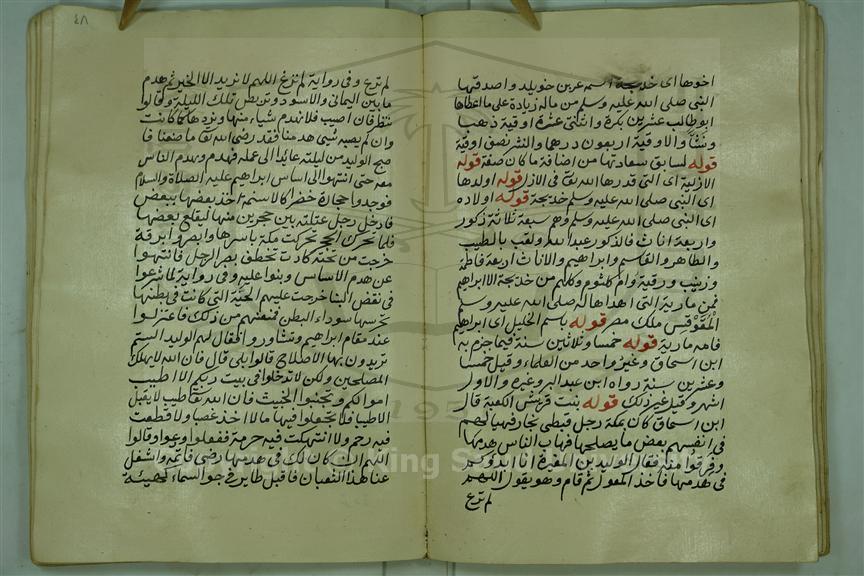 اخوها اى خديجة اسمه عمرو بن خويلد واصدقها
النبى صلى الله عليه وسلم من ماله زيادة على ما اعطاها
ابو طالب عشرين بكرة واثنتى عشرة اوقية ذهبا
ونشا والاوقية اربعون درهما والنش نصف اوقية
قوله لسابق سعادتها من اضافة ما كان صفة قوله
الازلية اى التى قدرها الله تعا فى الازل قوله اولدها
اى النبى صلى الله عليه وسلم خديجة قوله اولاده
اى النبى صلى الله عليه وسلم وهم سبعة ثلاثة ذكور
واربعة اناث فالذكور عبد الله ولقب بالطيب
والطاهر والقاسم وابراهيم والاناث اربعة فاطمة
وزينب ورقية وام كلثوم وكلهم من خديجة الا ابراهيم
فمن مارية التى اهداها له صلى الله عليه وسلم
المقوقس ملك مصر قوله باسم الخليل اى ابراهيم
فامه مارية قوله خمسا وثلاثين سنة فيما جزم به
ابن اسحاق وغير واحد من العلماء وقيل خمسا
وعشرين سنة رواه ابن عبد البر وغيره والاول
اشهر وقيل غير ذلك قوله بنت قريش الكعبة قال
ابن اسحاق كان بمكة رجل قبطى نجار فهيا لهم
فى انفسهم بعض ما يصلحها فهاب الناس هدمها
وفرقوا منه فقال الوليد بن المغيرة انا ابدؤكم
فى هدمها فاخذ المعول ثم قام وهو يقول اللهم
لم ترع
٤٨
لم ترع وفى رواية لم نزغ اللهم لا نريد الا الخير ثم هدم
ما بين اليمانى والاسود وتربص تلك الليلة وقالوا
ننظر فان اصيب فلا نهدم شياء منها ونردها كما كانت
وان لم يصبه شىء هدمنا فقد رضى الله تعا ما صنعنا فا
صبح الوليد من ليلته عائدا الى عمله فهدم وهدم الناس
معه حتى انتهوا الى اساس ابراهيم عليه الصلاة والسلام
فوجدوا حجارة خضرا كالاسنمة اخذ بعضها ببعض
فادخل رجل عتلته بين حجرين منها ليقلع بعضها
فلما تحرك الحجر تحركت مكة باسرها وابصروا برقة
خرجت من تحته كادت تخطف بصر الرجل فانتهوا
عن هدم الاساس وبنوا عليه وفى رواية لما شرعوا
فى نقض البنا خرجت عليهم الحية التى كانت فى بطنها
تحرسها سوداء البطن فمنعتهم من ذلك فاعتزلوا
عند مقام ابراهيم وتشاوروا فقال لهم الوليد الستم
تريدون بها الاصلاح قالوا بلى قال فان الله لا يهلك
المصلحين ولكن لا تدخلوا فى بيت ربكم الا اطيب
اموالكم وتجنبوا الخبيث فان الله تعا طيب لا يقبل
الا طيبا فلا تجعلوا فيها مالا اخذ غصبا ولا قطعت
فيه رحم ولا انتهكت فيه حرمة ففعلوا ودعوا وقالوا
اللهم ان كان لك فى هدمها رضى فاتمه واشغل
عنا هذا الثعبان فاقبل طاير فى جو السماء كهيئة